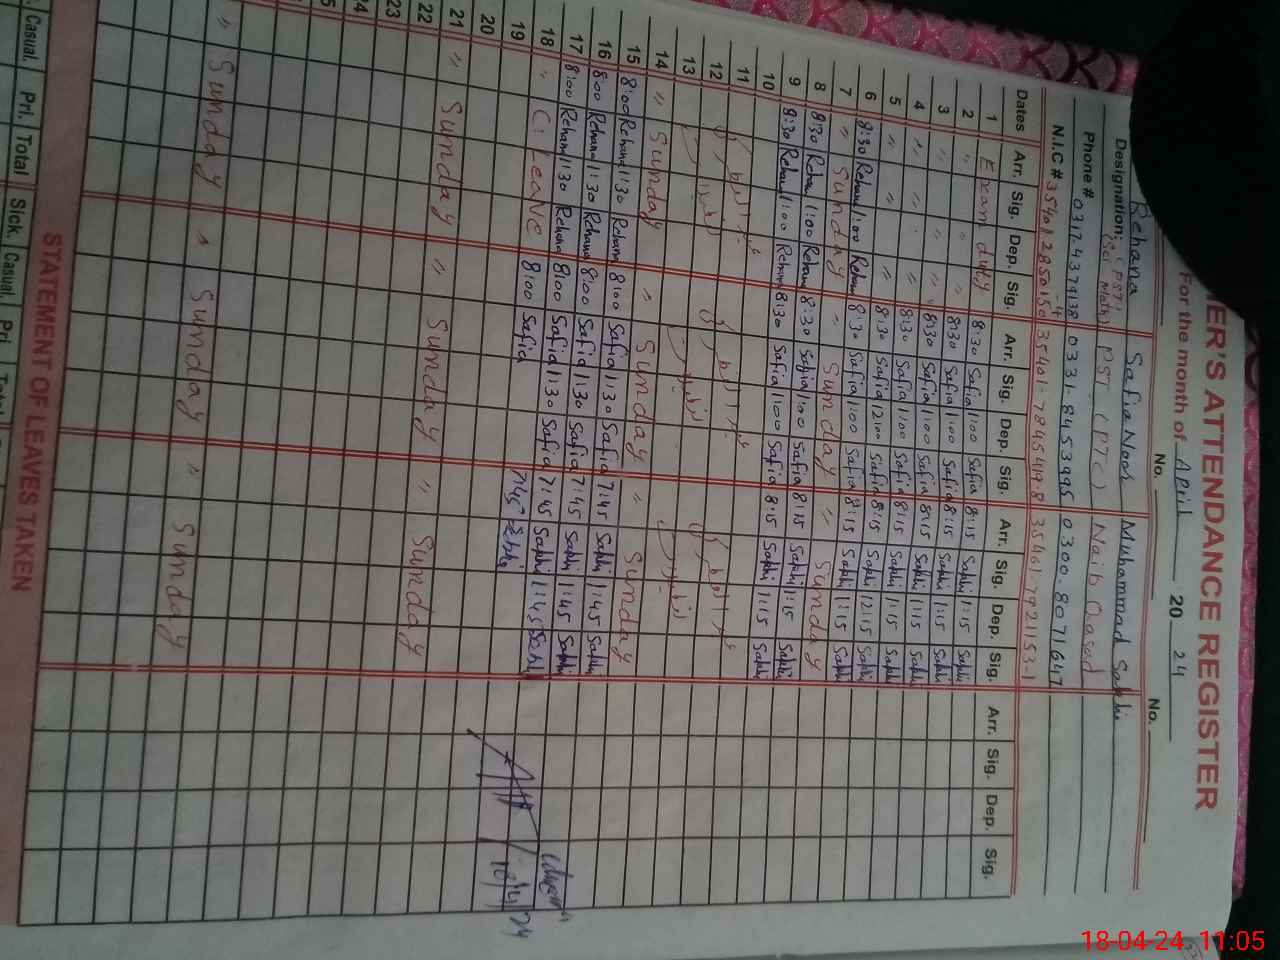 HER'S ATTENDANCE REGISTER
For the month of April 2024
No. No.
Rehana Safia Noor Muhammad Sakhi
Designation: (PST) (Sci Math) PST (PTC) Naib Qasad
Phone # 0317-4374138 0331-8453995 0300-8071647
N.I.C # 35401-7845419-8 35461-7921153-1
Dates Arr. Sig. Dep. Sig. Arr. Sig. Dep. Sig. Arr. Sig. Dep. Sig. Arr. Sig. Dep. Sig.
1 Exam duty 8:30 Safia 1:00 Safia 8:15 Sakhi 1:15 Sakhi
2 " " " 8:30 Safia 1:00 Safia 8:15 Sakhi 1:15 Sakhi
3 " " " 8:30 Safia 1:00 Safia 8:15 Sakhi 1:15 Sakhi
4 " " " 8:30 Safia 1:00 Safia 8:15 Sakhi 1:15 Sakhi
5 " " " 8:30 Safia 12:00 Safia 8:15 Sakhi 12:15 Sakhi
6 8:30 Rehana 1:00 Rehana 8:30 Safia 1:00 Safia 8:15 Sakhi 1:15 Sakhi
7 " Sunday " Sunday " Sunday
8 8:30 Rehana 1:00 Rehana 8:30 Safia 1:00 Safia 8:15 Sakhi 1:15 Sakhi
9 8:30 Rehana 1:00 Rehana 8:30 Safia 1:00 Safia 8:15 Sakhi 1:15 Sakhi
10
11
12
13
14 " Sunday " Sunday " Sunday
15 8:00 Rehana 1:30 Rehana 8:00 Safia 1:30 Safia 7:45 Sakhi 1:45 Sakhi
16 8:00 Rehana 1:30 Rehana 8:00 Safia 1:30 Safia 7:45 Sakhi 1:45 Sakhi
17 8:00 Rehana 1:30 Rehana 8:00 Safia 1:30 Safia 7:45 Sakhi 1:45 Sakhi
18 " C. Leave 8:00 Safia 7:45 Sakhi
19
20
21 " Sunday " Sunday " Sunday
22
23
" Sunday " Sunday " Sunday
18/4/24
STATEMENT OF LEAVES TAKEN
Casual. Pri. Total Sick. Casual. Pri Total
18-04-24, 11:05